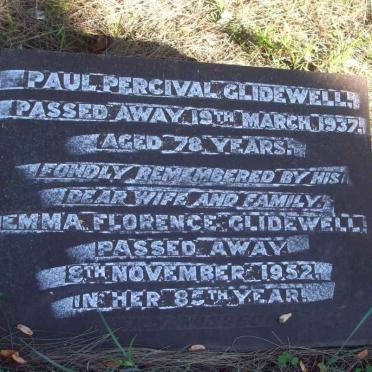 PAUL PERCIVAL GLIDEWELL,
PASSED AWAY 19TH MARCH 1937,
AGED 78 YEARS.
FONDLY REMEMBERED BY HIS
DEAR WIFE AND FAMILY.
EMMA FLORENCE GLIDEWELL,
PASSED AWAY
8TH NOVEMBER 1952.
IN HER 85TH YEAR.